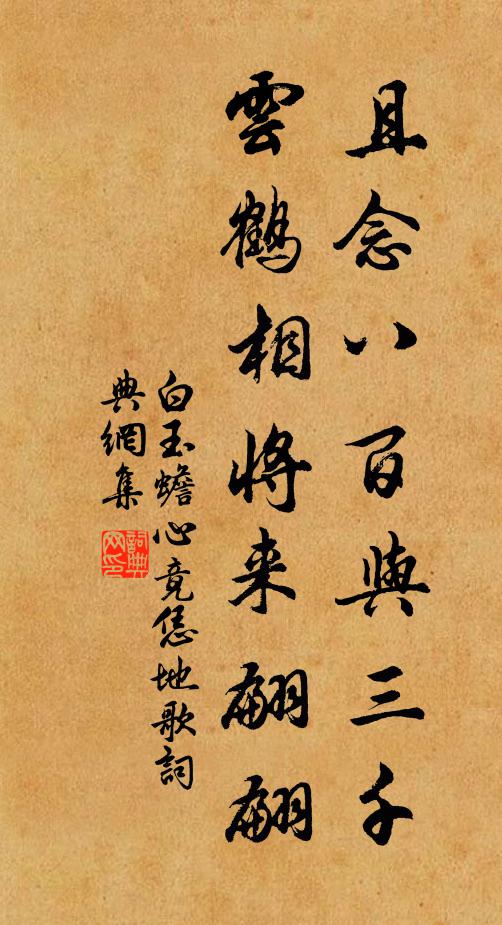 且念八百與三千
雲鶴相將来翩翩
白玉蟾心竟恁地歌詞
典網集
詞典
网印